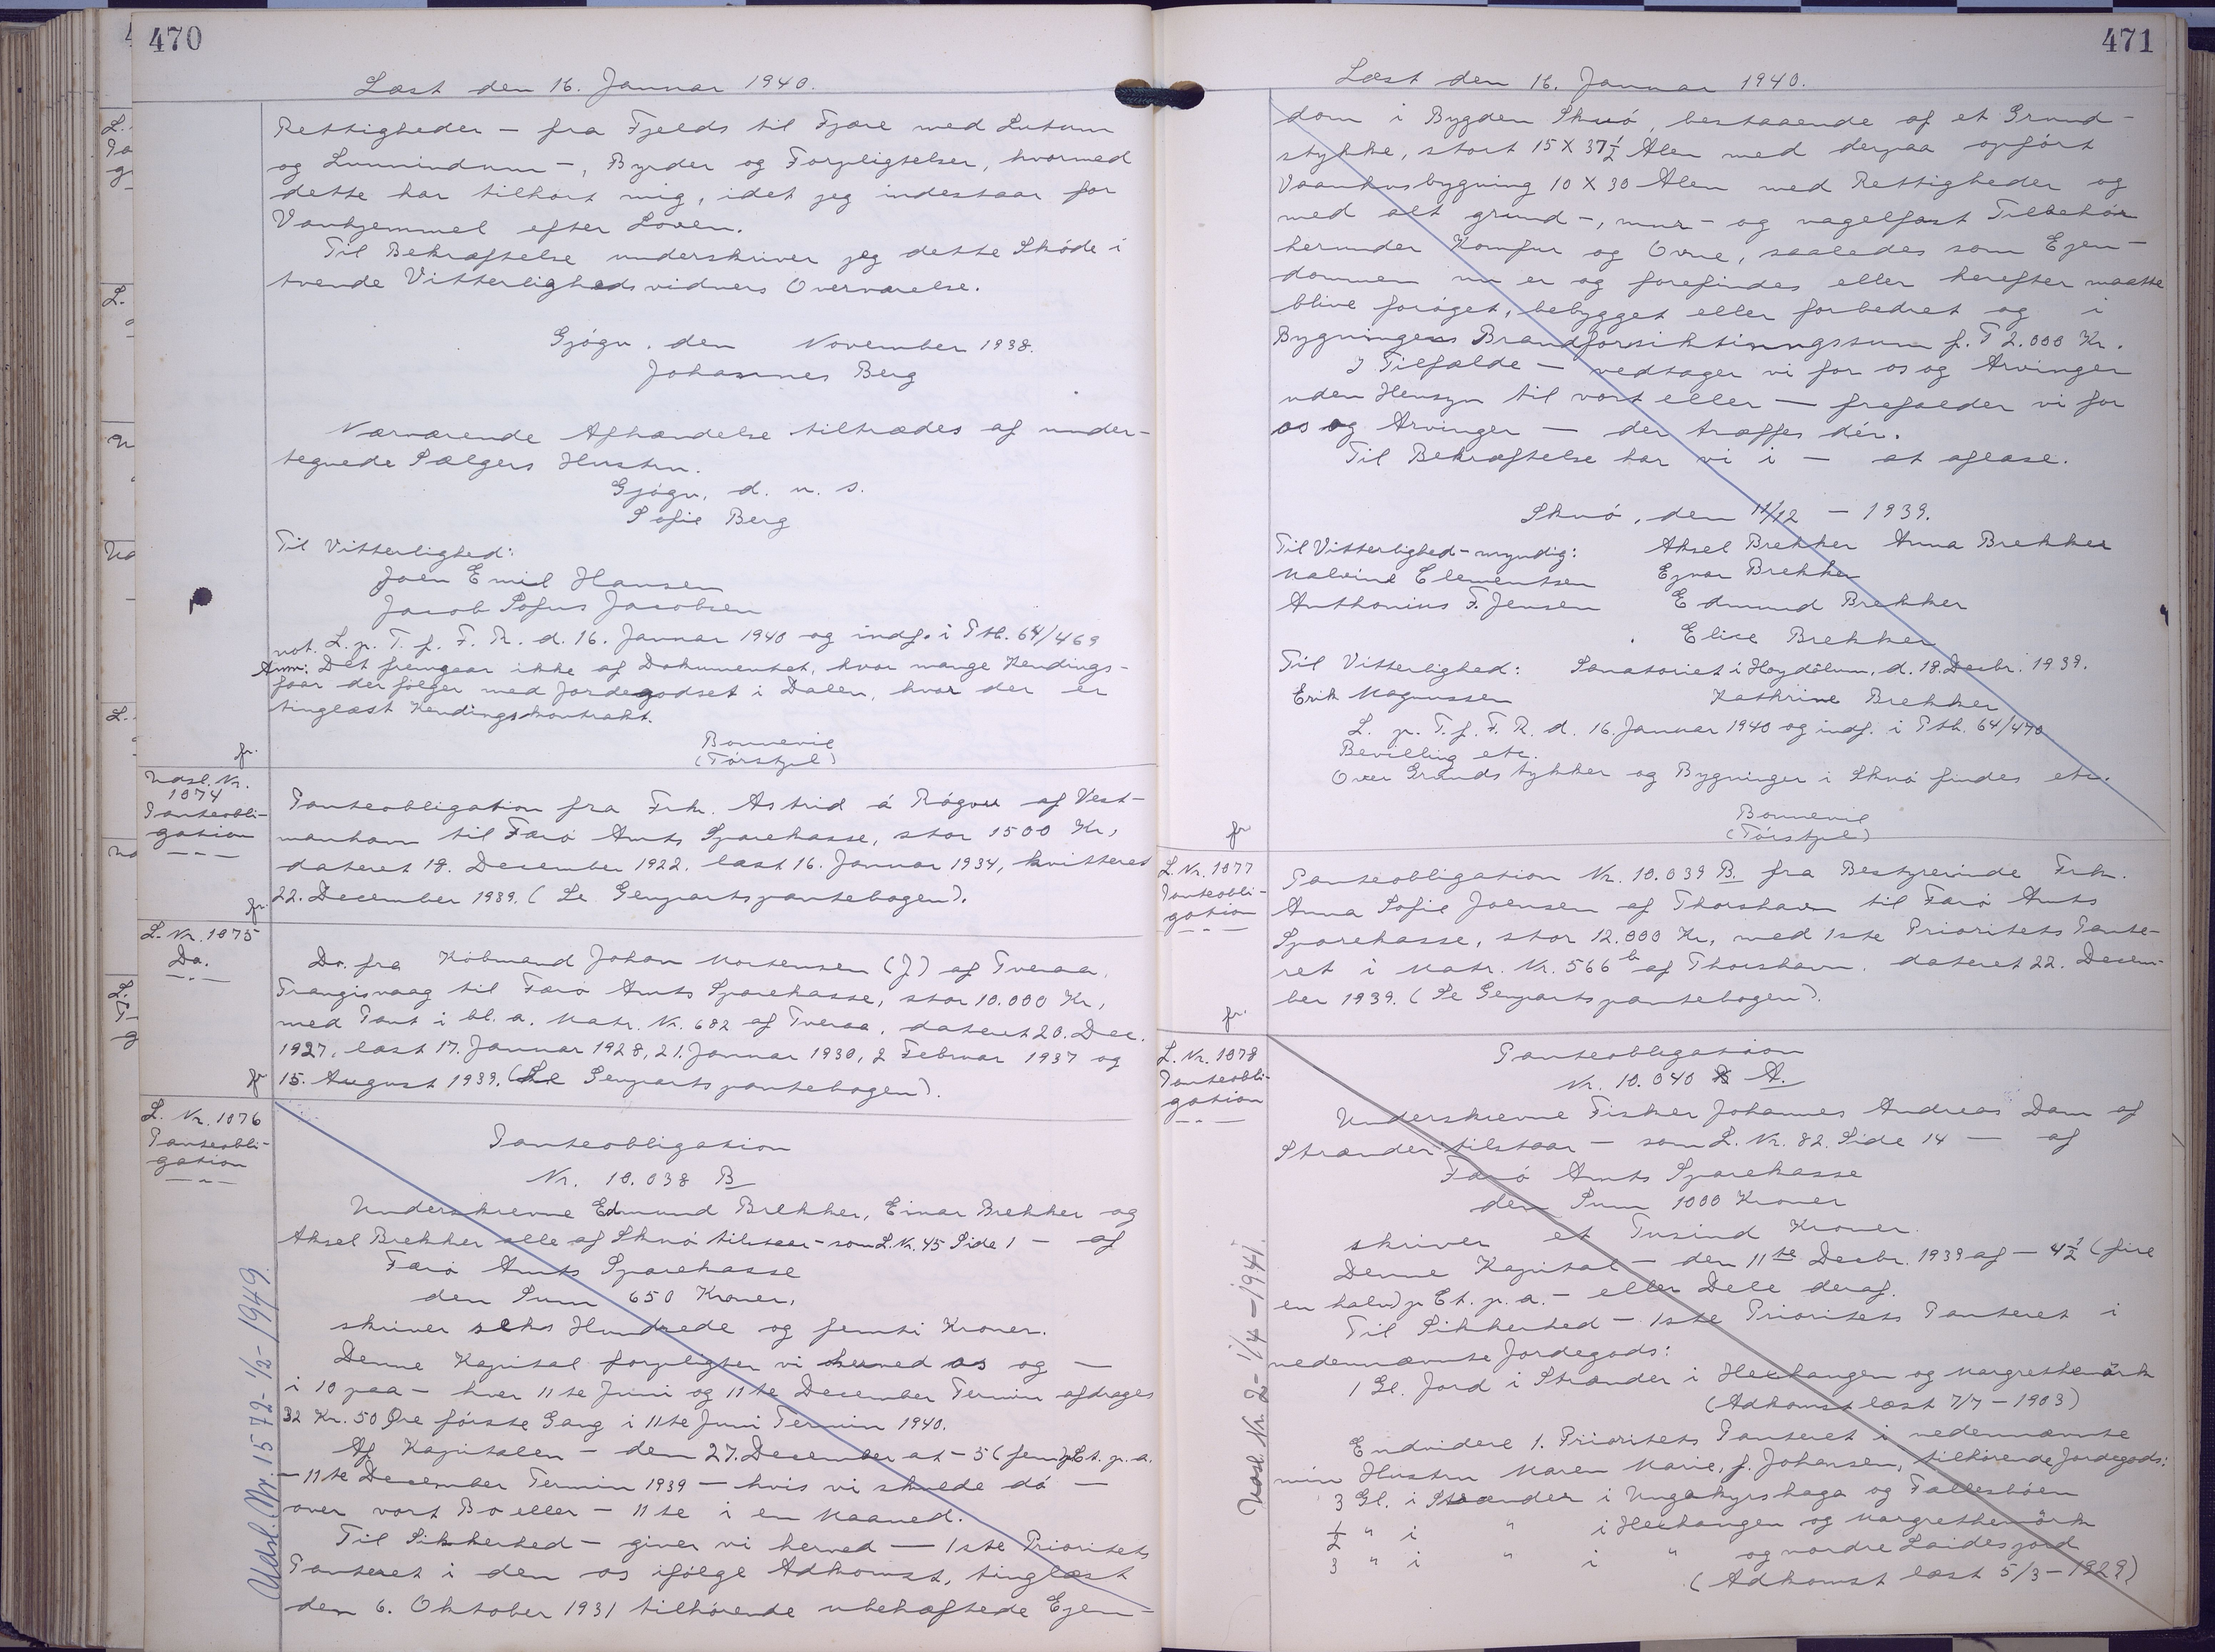 470
Læst den 16. Januar 1940.
Rettigheder – fra Fjelds til Fjære med Lutum
og Lunnindum –, Byrder og Forpligtelser, hvormed
dette har tilhørt mig, idet jeg indestaar for
Vanhjemmel efter Loven.
Til Bekræftelse underskriver jeg dette Skøde i
tvende Vitterlighedsvidners Overværelse.
Gjógv, den November 1938.
Johannes Berg
Nærværende Afhændelse tiltrædes af under-
tegnede Sælgers Hustru.
Gjógv, d. u. s.
Sofie Berg
Til Vitterlighed:
Joen Emil Hansen
Jacob Sofus Jacobsen
not. L. p. T. f. F. R. d. 16. Januar 1940 og indf. i Ptb. 64/469
Anm: Det fremgaar ikke af Dokumentet, hvor mange Kendings-
faar der følger med Jordegodset i Dalen, hvor der er
tinglæst Kendingskontrakt.
Bonnevie
(Tórstjel)
fr.
Udsl. Nr.
1074
Panteobli-
gation
Panteobligation fra Frk. Astrid á Rógvu af Vest-
manhavn til Færø Amts Sparekasse, stor 1500 Kr,
dateret 18. December 1922, læst 16. Januar 1934, kvitteret
22. December 1939. (Se Genpartspantebogen).
fr.
L. Nr. 1075
Do.
Do. fra Købmand Johan Mortensen (J) af Tveraa,
Trangisvaag til Færø Amts Sparekasse, stor 10.000 Kr,
med Pant i bl. a. Matr. Nr. 682 af Tveraa, dateret 20. Dec.
1927, læst 17. Januar 1928, 21. Januar 1930, 2 Februar 1937 og
15. August 1939. (Se Genpartspantebogen).
fr
L. Nr. 1076
Panteobli-
gation
Panteobligation
Nr. 10.038 B
Underskrevne Edmund Brekker, Einar Brekker og
Aksel Brekker alle af Skuó tilstaar – som L. Nr. 45 Side 1 – af
Færø Amts Sparekasse
den Sum 650 Kroner,
skriver seks Hundrede og femti Kroner.
Denne Kapital forpligter vi herved os og —
i 10 paa – hver 11te Juni og 11te December Termin afdrages
32 Kr. 50 Øre første Gang i 11te Juni Termin 1940.
Af Kapitalen – den 27. December at – 5 (fem) pCt. p. a.
– 11te December Termin 1939 – hvis vi skulde dø —
over vort Bo eller – 11te i en Maaned.
Til Sikkerhed – giver vi herved — 1ste Prioritets
Panteret i den os ifølge Adkomst, tinglæst
den 6. Oktober 1931 tilhørende ubehæftede Ejen-
Udsl. Nr. 1572 - 1/2 - 1949.
471
Læst den 16. Januar 1940.
dom i Bygden Skuó, bestaaende af et Grund-
stykke, stort 15 X 37½ Alen med derpaa opført
Vaanhusbygning 10 X 30 Alen med Rettigheder og
med alt grund-, mur- og nagelfast Tilbehør
herunder Komfur og Ovne, saaledes som Ejen-
dommen nu er og forefindes eller herefter maatte
blive forøget, bebygget eller forbedret og i
Bygningens Brandforsikringssum f. T 2.000 Kr.
I Tilfælde — vedtager vi for os og Arvinger
uden Hensyn til vort eller — frafalder vi for
os og Arvinger — der træffes dér.
Til Bekræftelse har vi i — at aflæse.
Skuó, den 11/12 – 1939.
Til Vitterlighed – myndig: Aksel Brekker Anna Brekker
Malvine Clementsen Ejnar Brekker
Anthonius F. Jensen Edmund Brekker
Elise Brekker
Til Vitterlighed: Sanatoriet i Hoydölum, d. 18. Decbr. 1939.
Erik Magnussen Kathrine Brekker
L. p. T. f. F. R. d. 16. Januar 1940 og indf. i Ptb. 64/470
Bevilling etc.
Over Grundstykker og Bygninger i Skuó findes etc.
Bonnevie
(Tórstjel)
fr
L. Nr. 1077
Panteobli-
gation
Panteobligation Nr. 10.039 B. fra Bestyrerinde Frk.
Anna Sofie Joensen af Thorshavn til Færø Amts
Sparekasse, stor 12.000 Kr, med 1ste Prioritets Pante-
ret i Matr. Nr. 566 b af Thorshavn, dateret 22. Decem-
ber 1939. (Se Genpartspantebogen).
fr.
L. Nr. 1078
Panteobli-
gation
Panteobligation
Nr. 10.040 A.
Underskrevne Fisker Johannes Andreas Dam af
Strænder tilstaar – som L. Nr. 82. Side 14 — af
Færø Amts Sparekasse
den Sum 1000 Kroner
skriver et Tusind Kroner.
Denne Kapital – den 11te Decbr. 1939 af – 4½ (fire
en halv) p Ct. p. a. – eller Dele deraf.
Til Sikkerhed – 1ste Prioritets Panteret i
nedennævnte Jordegods:
1 Gl. Jord i Strænder i Hexhangen og Margrethemörk
(Adkomst læst 7/7 – 1903)
Endvidere 1. Prioritets Panteret i nedennævnte
min Hustru Maren Marie, f. Johansen, tilhørende Jordegods:
3 Gl. i Strænder i Ungakyrshaga og Fallesbóen
½ " i " i Hexhangen og Margrethemörk
3 " i " i " og nordre Laidesjord
(Adkomst læst 5/3 – 1929)
Udsl. Nr. 2 - 1/4 - 1941.